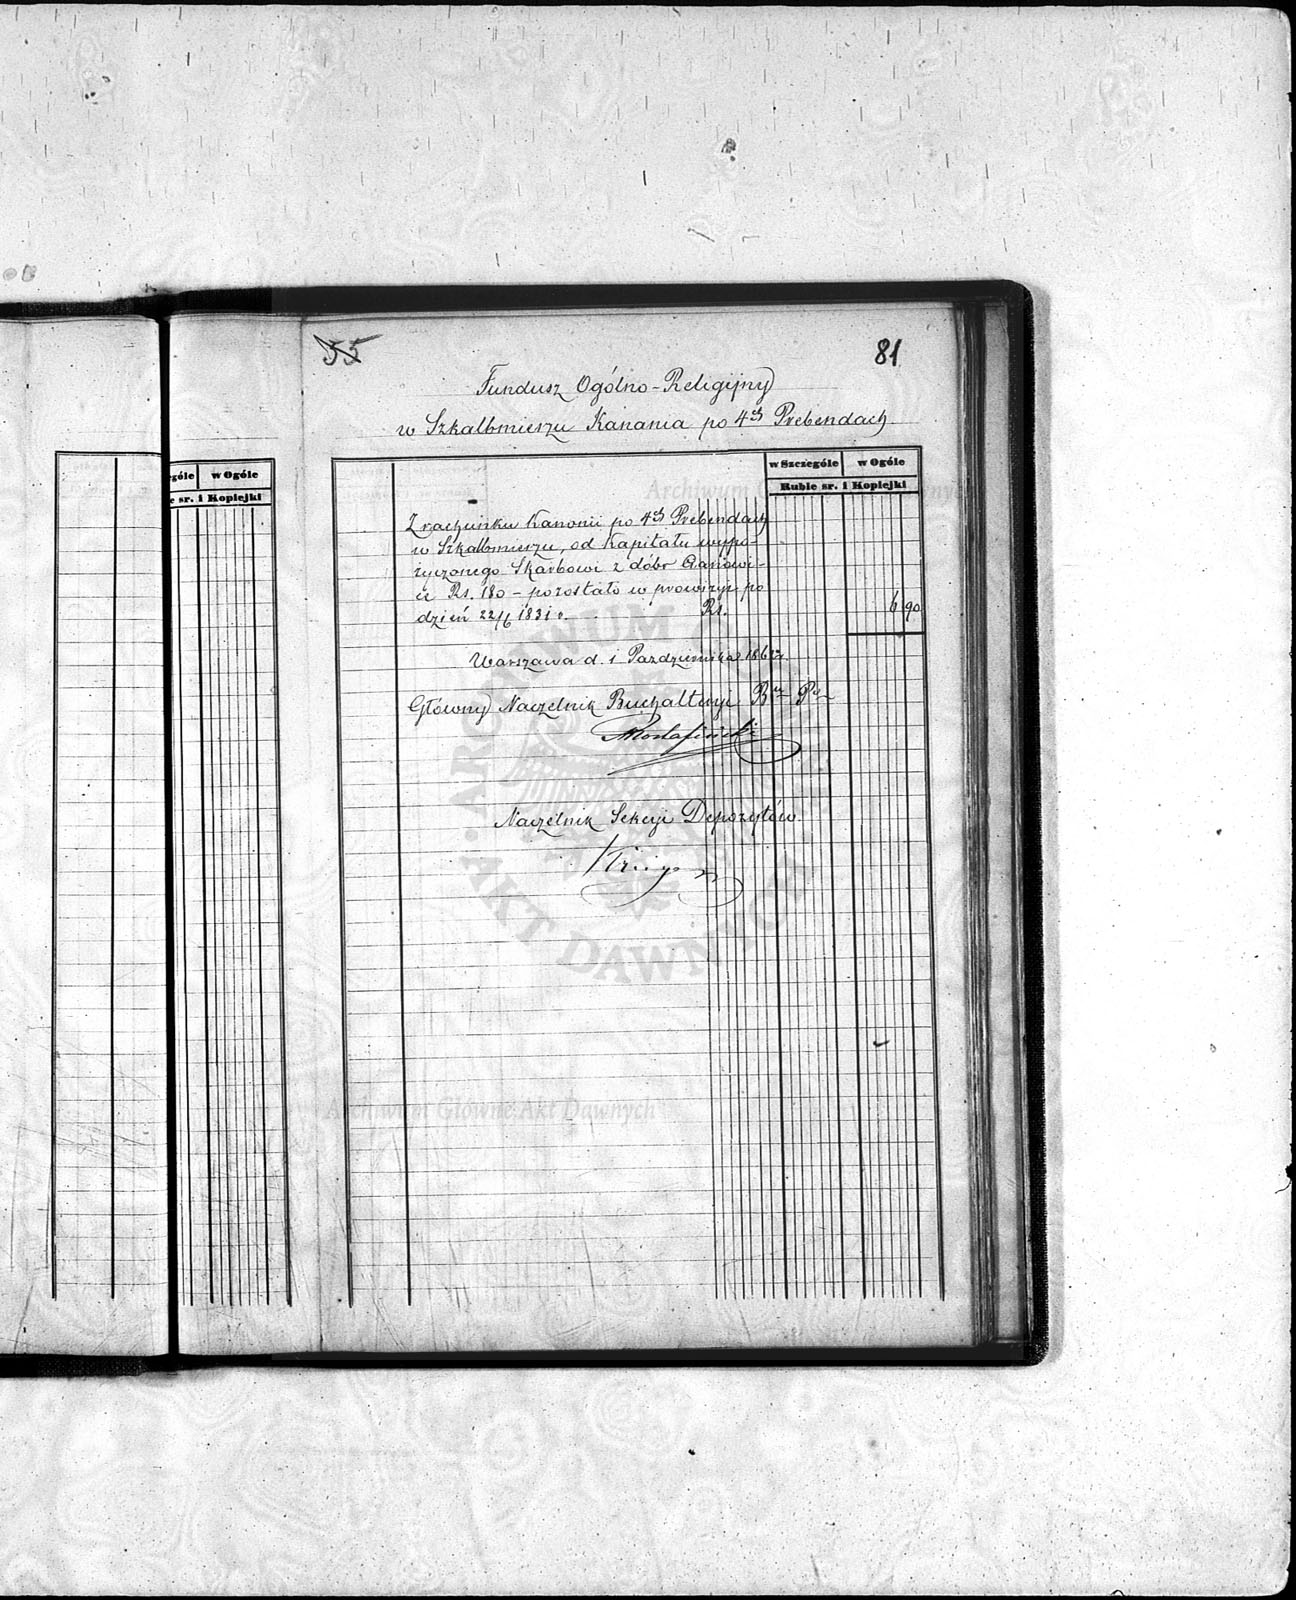 55
81
Fundusz Ogólno-Religijny
w Szkalbmierzu Kanania po 4ch Prebendach
w Szczególe w Ogóle
Ruble sr. i Kopiejki
góle w Ogóle
e sr. i Kopiejki
Z rachunku Kanonii po 4ch Prebendach
w Szkalbmierzu, od Kapitału wypo-
życzonego Skarbowi z dóbr
Rs. 180 – pozostało w prowizyi po
dzień 22/6 1831 r. Rs. 6 90
Warszawa d. 1 Pazdziernika
Główny Naczelnik Buchalteryi
Naczelnik Sekcyi Depozytów
Archiwum Główne Akt Dawnych
ARCHIWUM GŁÓWNE
AKT DAWNYCH